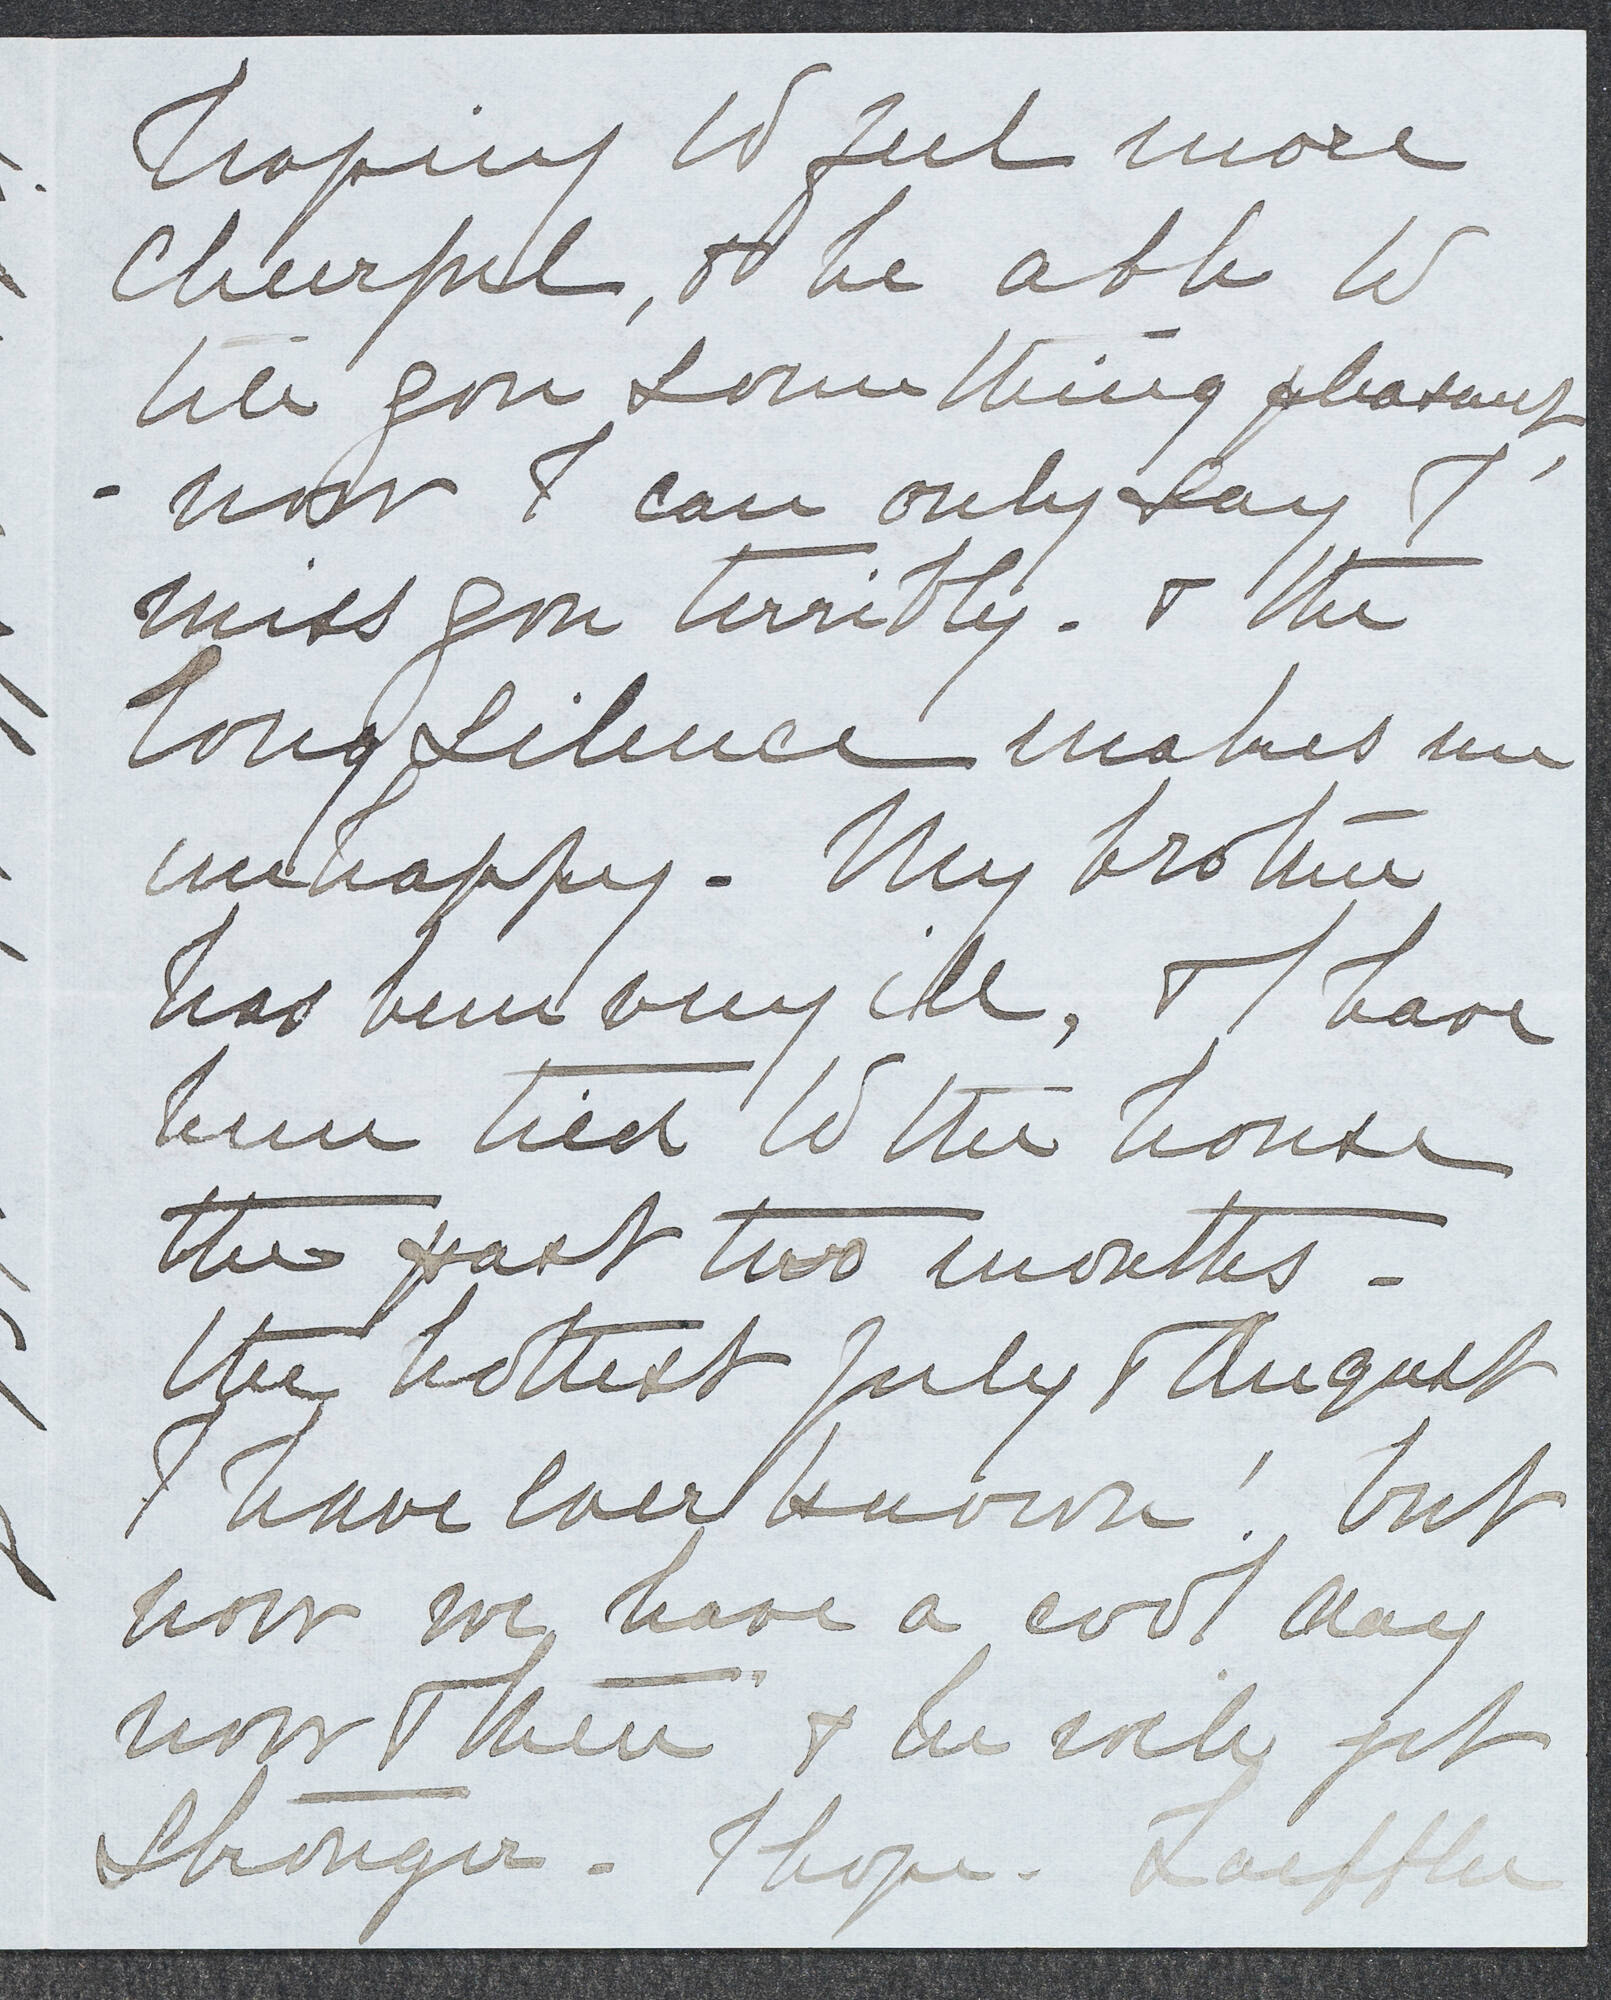 hoping to feel more
cheerful, & be able to
tell you something pleasant,
- now I can only say I
miss you terribly. & the
long silence makes me
unhappy. My brother
has been very ill, & I have
been tied to the house
the past two months -
the hottest July & August
I have ever known! but
now we have a cool day
now & then" & he will get
stronger - I hope. Loeffler